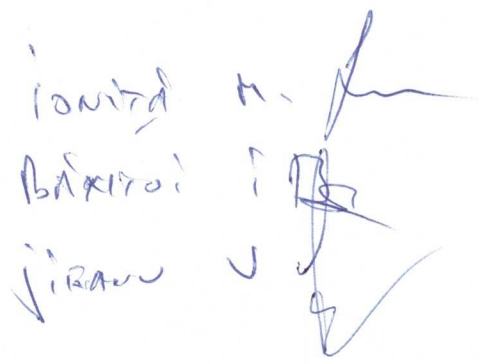 IONIȚĂ M.
BĂXITOI I
JIRANU V